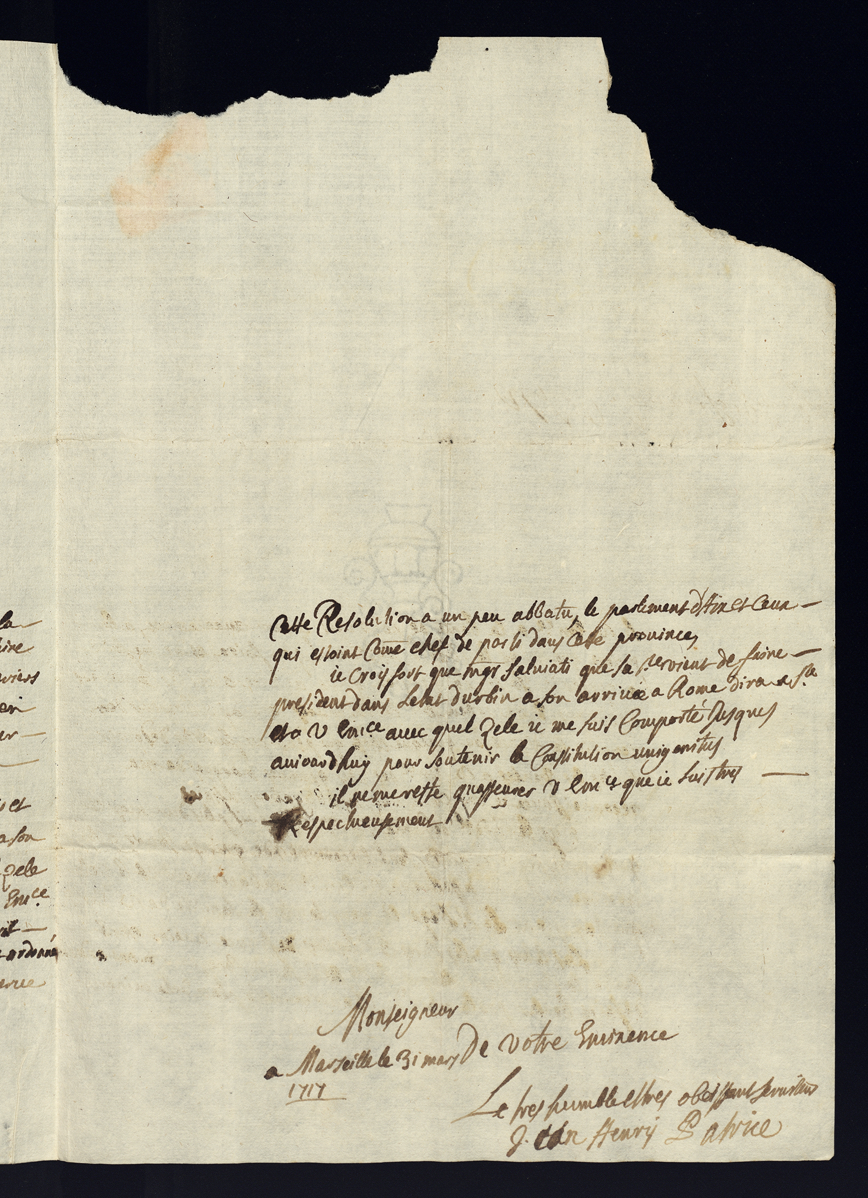 la
ier
et
a son
zele
Emce
ordonné
Cette Resolution a un peu abbatu, le parlement d'Aix et Ceux
qui estoint Come chef de parti dans Cete province,
ie Crois fort que mgr Salviati que sa de faire
president dans letat durbin a son arrivée a Rome dira a sa Ste
et a V Emce avec quel Zele ie me suis Comporté Jusques
auiourdhuy pour soutenir la Constitution unigenitus
il ne me reste qu'asseurer V Emce que ie suis tres
Respectueusement
Monseigneur
De Votre Eminence
a Marseille le 31 mars
1717
Le tres humble et tres obeissant serviteur
Jean Henry Patrice